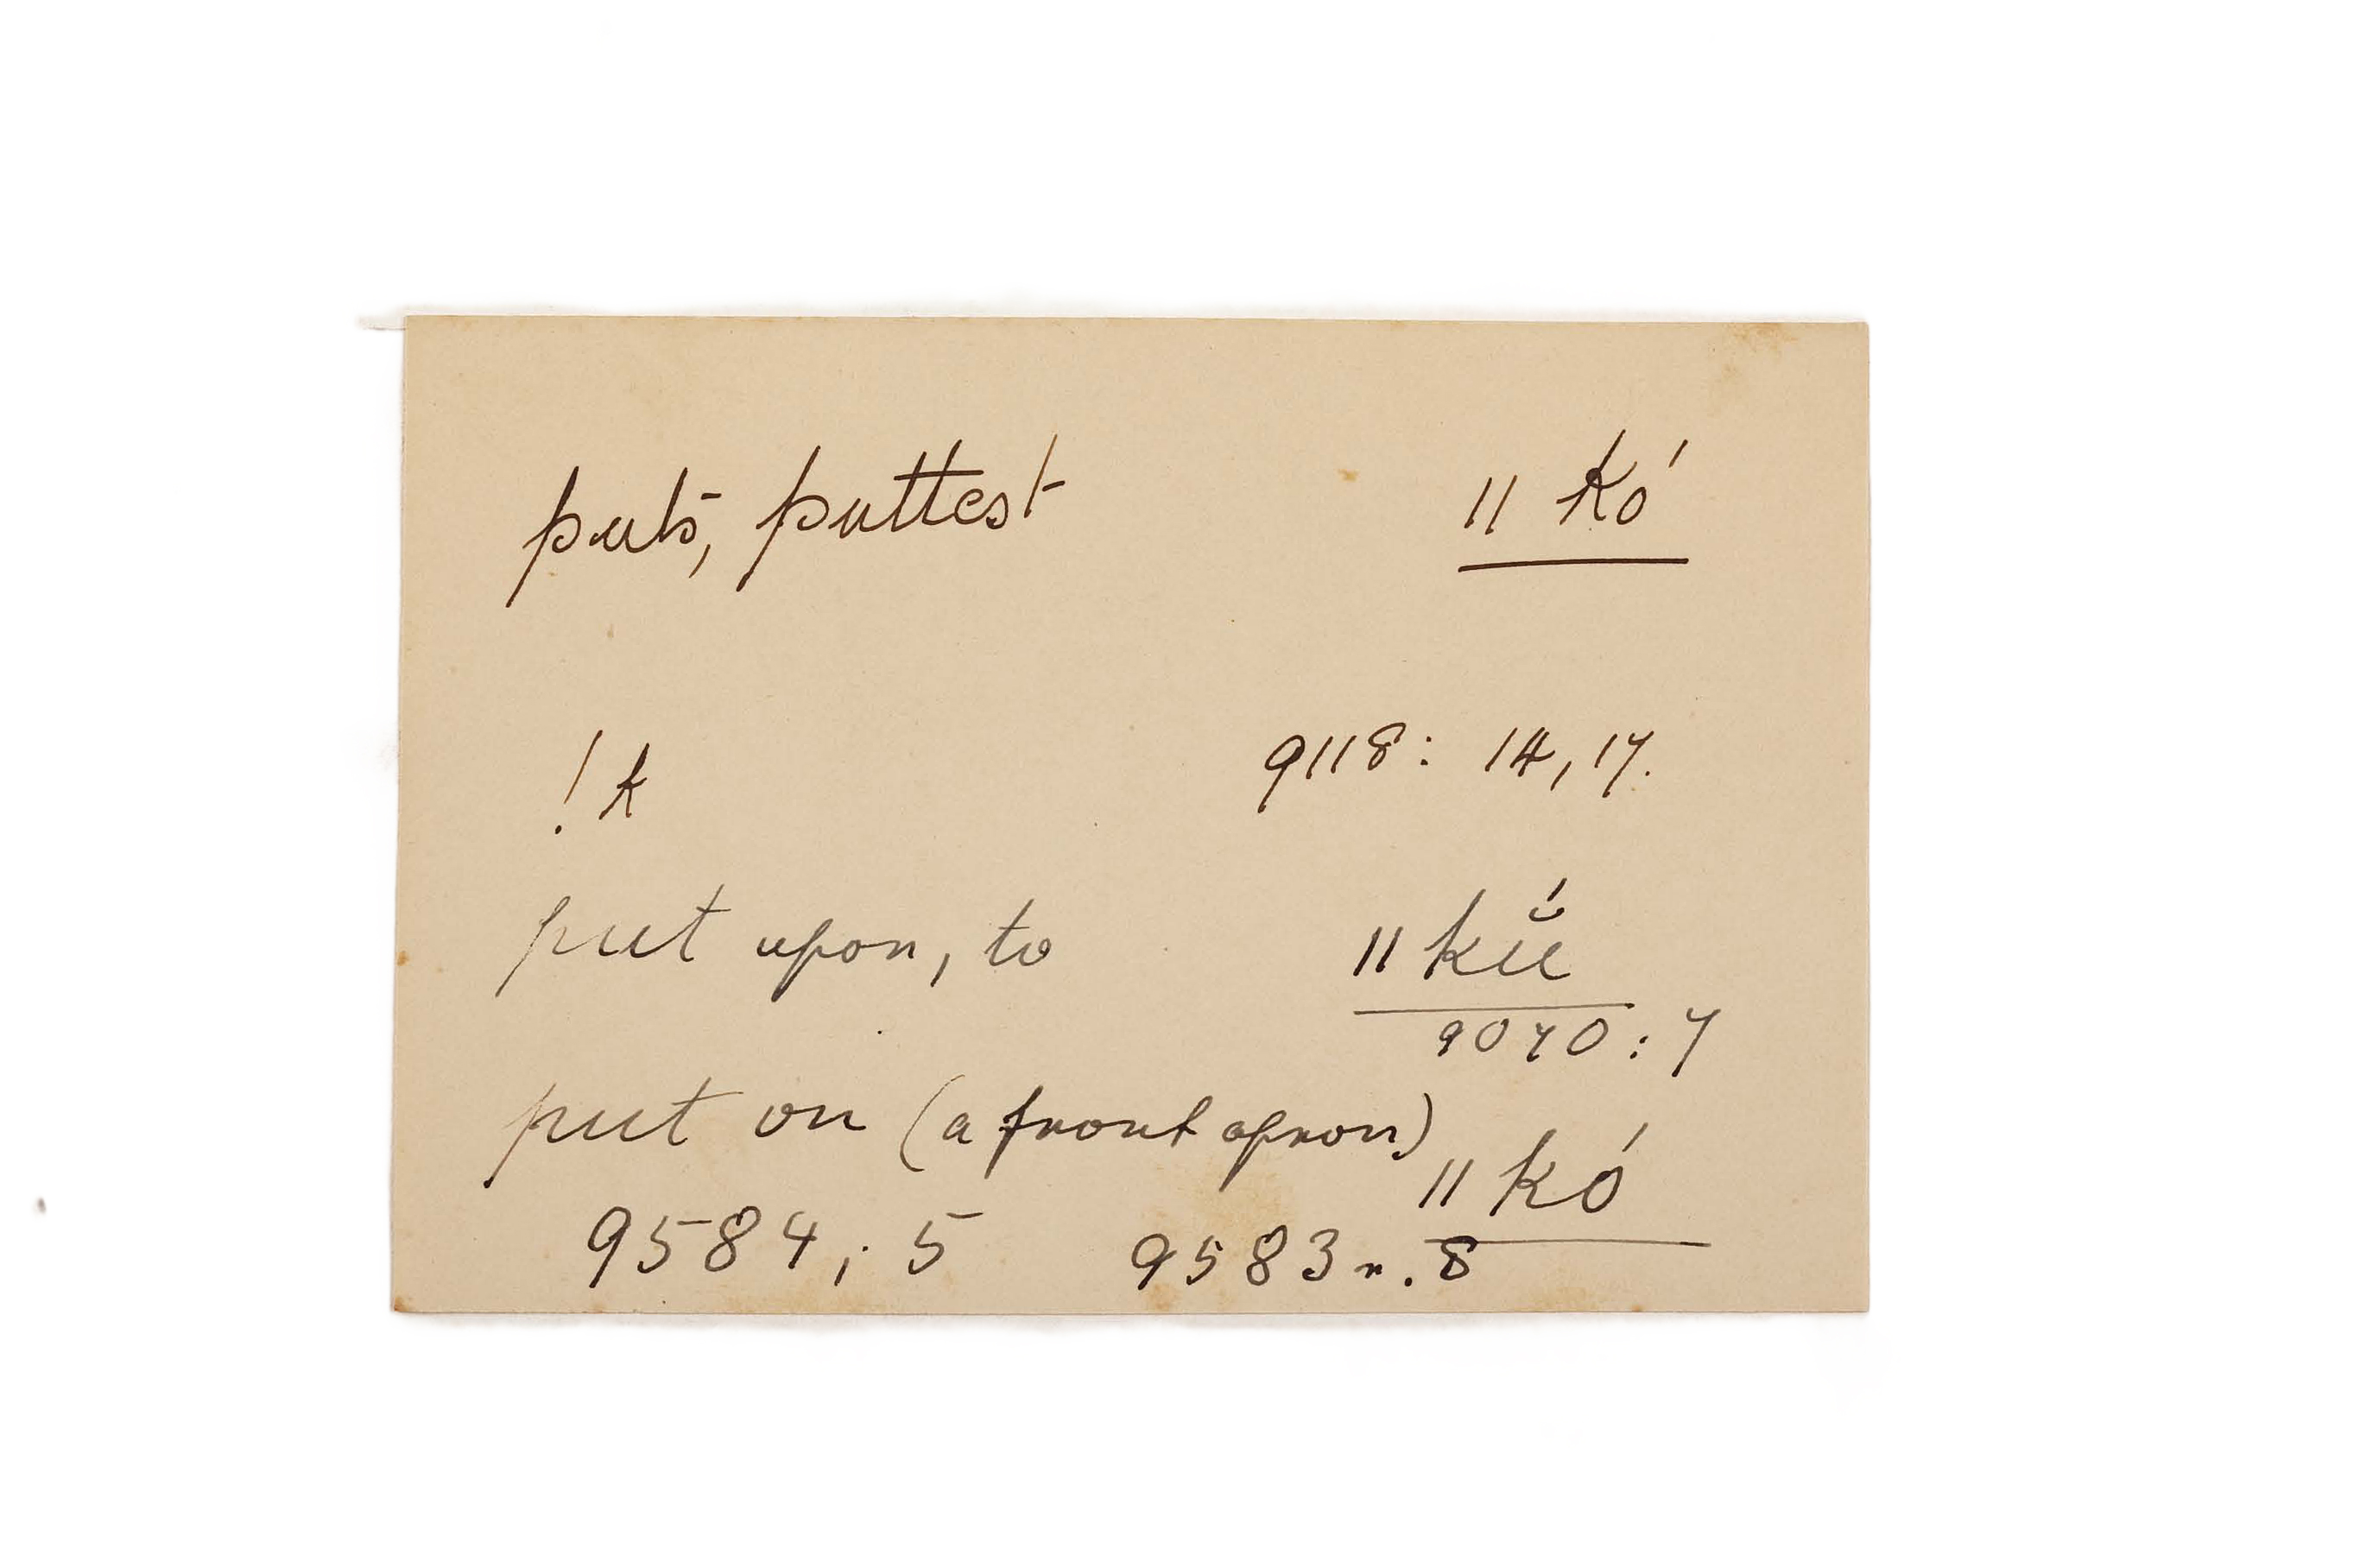 puts, puttest ǁ kó
!k 9118: 14, 17.
put upon, to ǁ kŭ́
9070 : 7
put on (a front apron)
ǁ kó
9584; 5 9583 r. 8